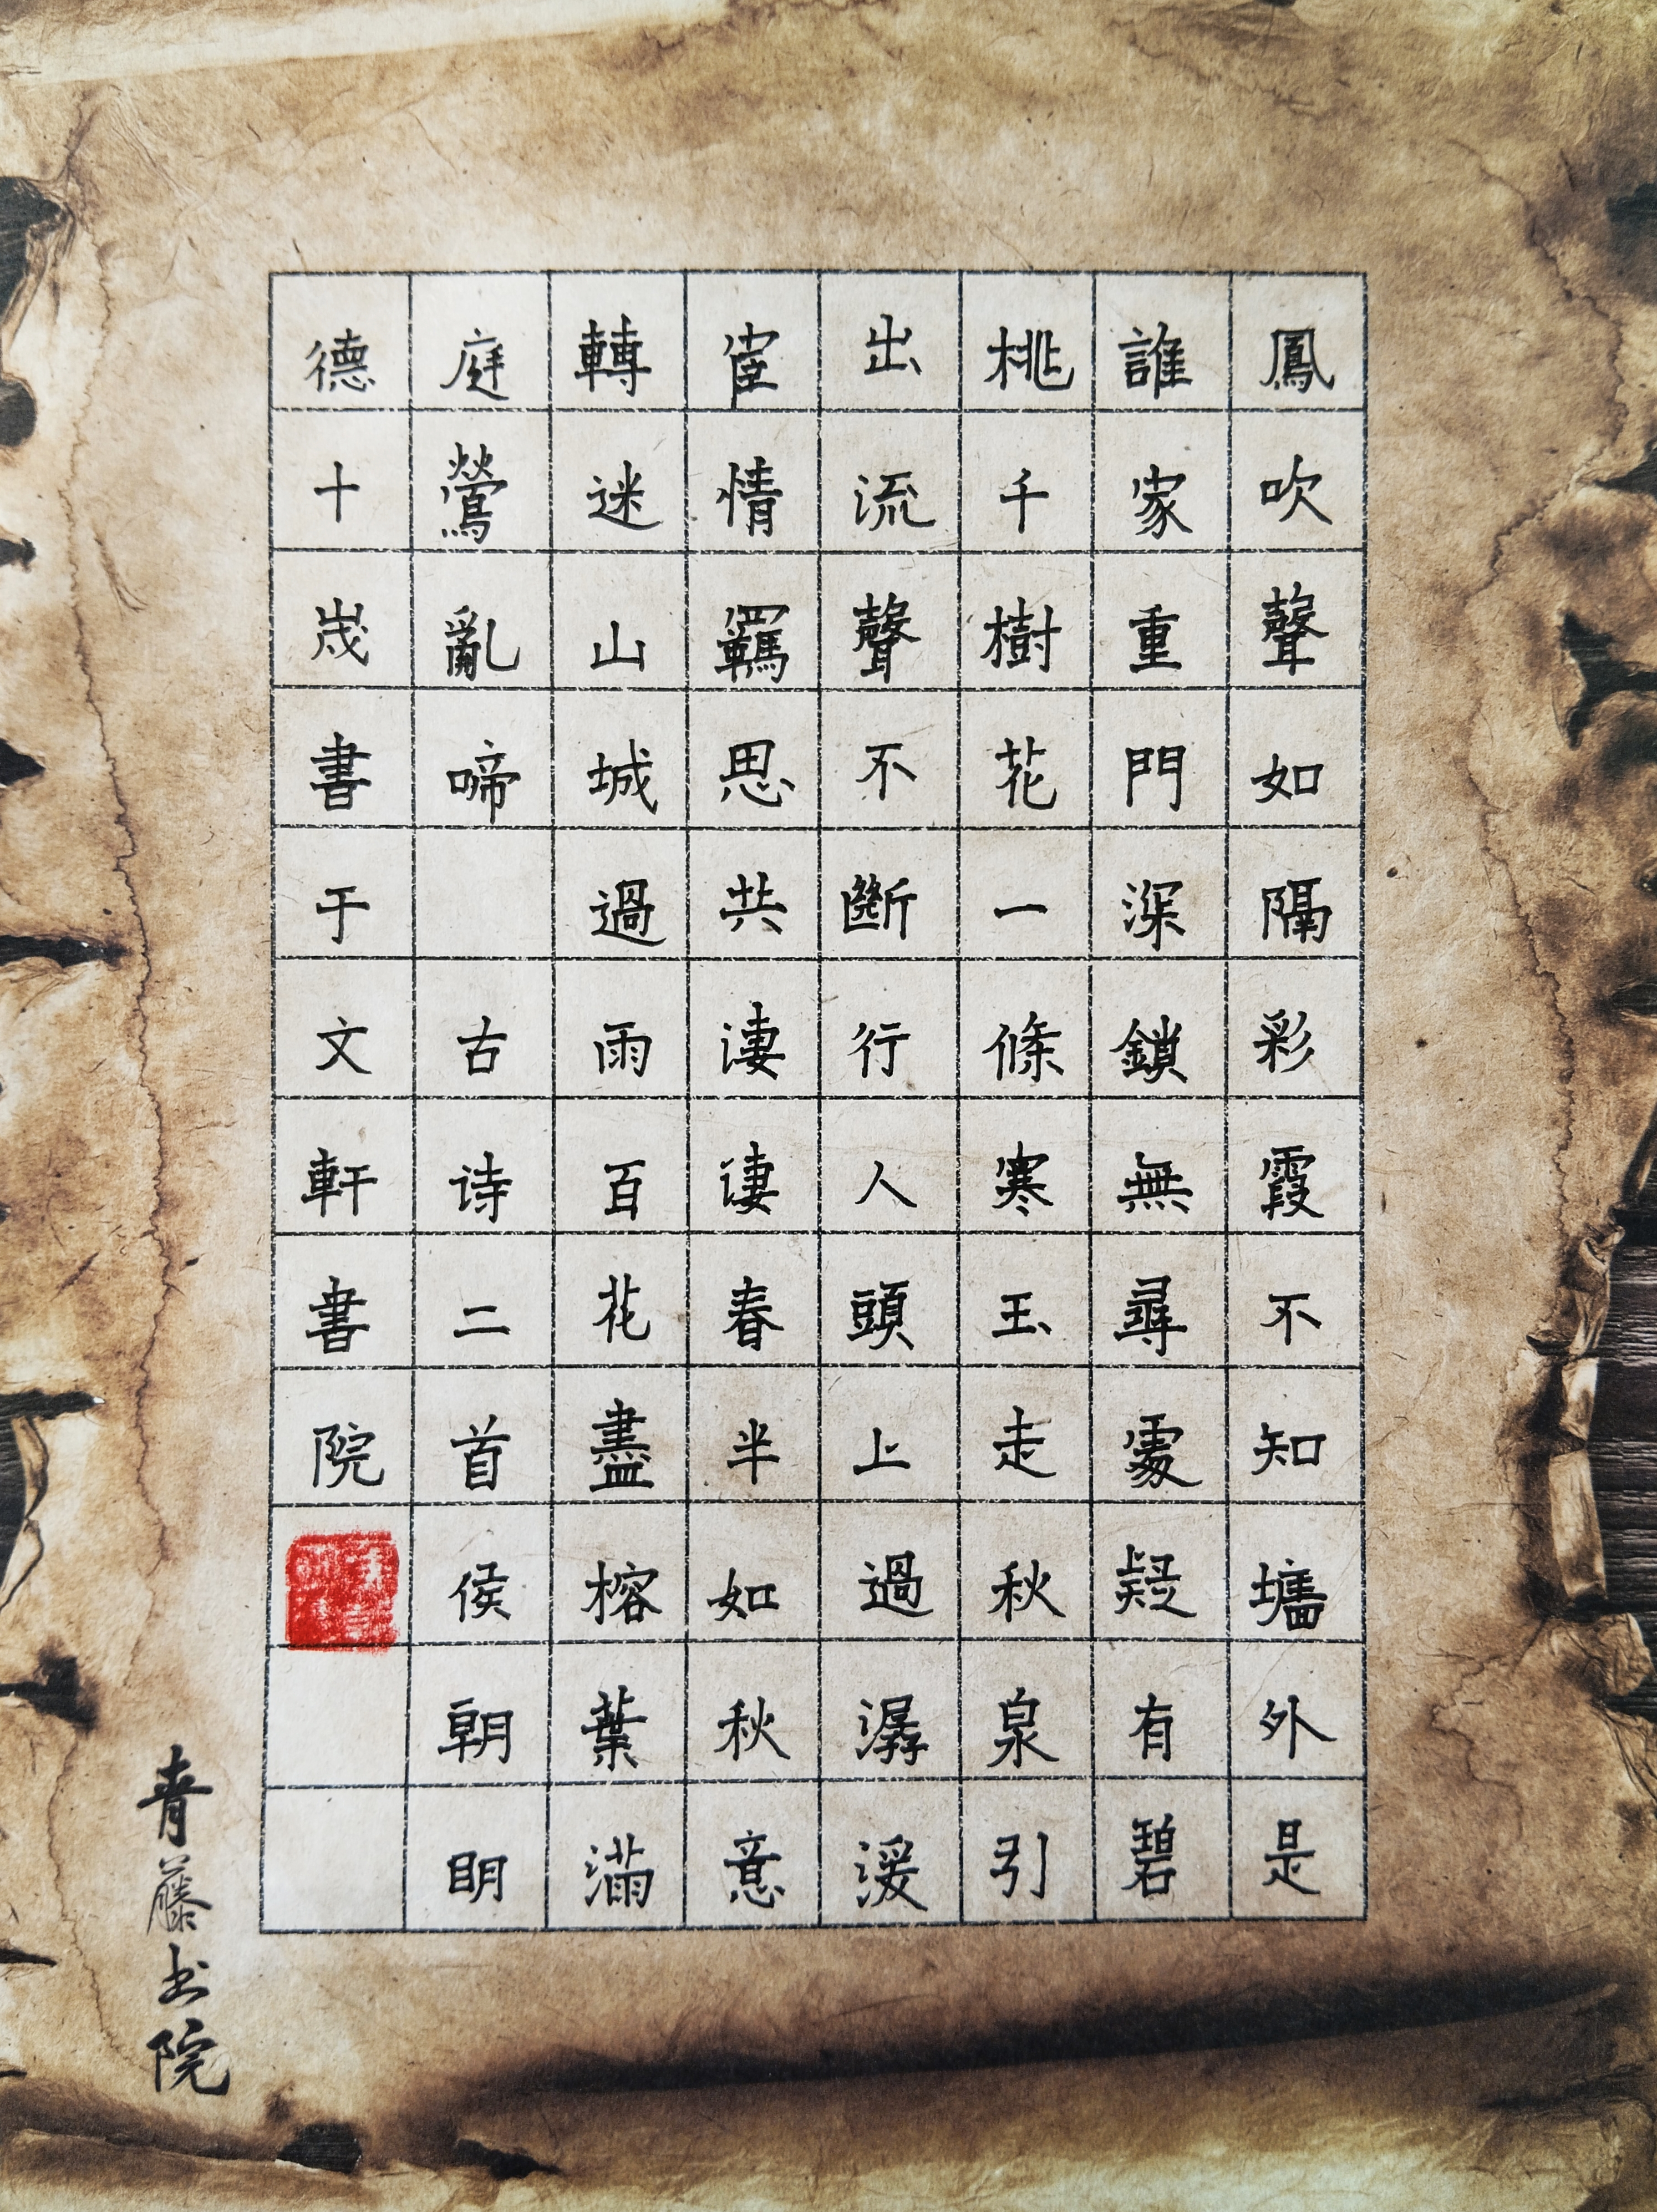 鳳吹聲如隔彩霞不知墻外是
誰家重門深鎖無尋處疑有碧
桃千樹花一條寒玉走秋泉引
出流聲不斷行人頭上過潺湲
宦情羈思共淒淒春半如秋意
轉迷山城過雨百花盡榕葉滿
庭鶯亂啼 古诗二首侯朝眀
德十歲書于文軒書院
青藤书院